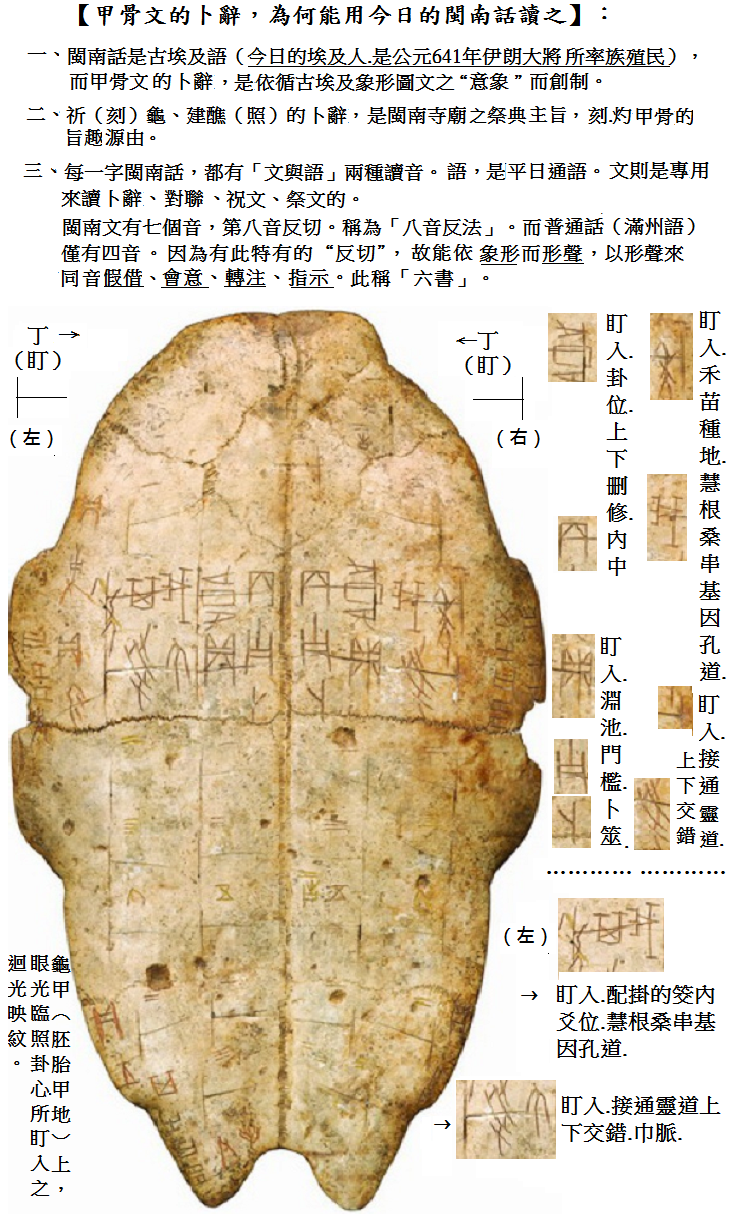 【甲骨文的卜辭，為何能用今日的閩南話讀之】：
一、閩南話是古埃及語（今日的埃及人.是公元641年伊朗大將所率族殖民），
而甲骨文的卜辭，是依循古埃及象形圖文之“意象”而創制。
二、祈（刻）龜、建醮（照）的卜辭，是閩南寺廟之祭典主旨，刻.灼甲骨的
旨趣源由。
三、每一字閩南話，都有「文與語」兩種讀音。語，是平日通語。文則是專用
來讀卜辭、對聯、祝文、祭文的。
閩南文有七個音，第八音反切。稱為「八音反法」。而普通話（滿州語）
僅有四音。因為有此特有的“反切”，故能依象形而形聲，以形聲來
同音假借、會意、轉注、指示。此稱「六書」。
丁→
（盯）
（左）
←丁
（盯）
（右）
盯入.禾苗種地.慧根桑串基因孔道.
盯入.卦位.上下删修.內中
盯入.接通靈道.
上下交錯
盯入.淵池.門檻.卜筮.
………… …………
（左）
→ 盯入.配掛的筊內
爻位.慧根桑串基
因孔道.
→ 盯入.接通靈道上
下交錯.巾脈.
龜甲（胚胎甲地）上，
眼光臨照卦心所盯入之
迴光映紋。